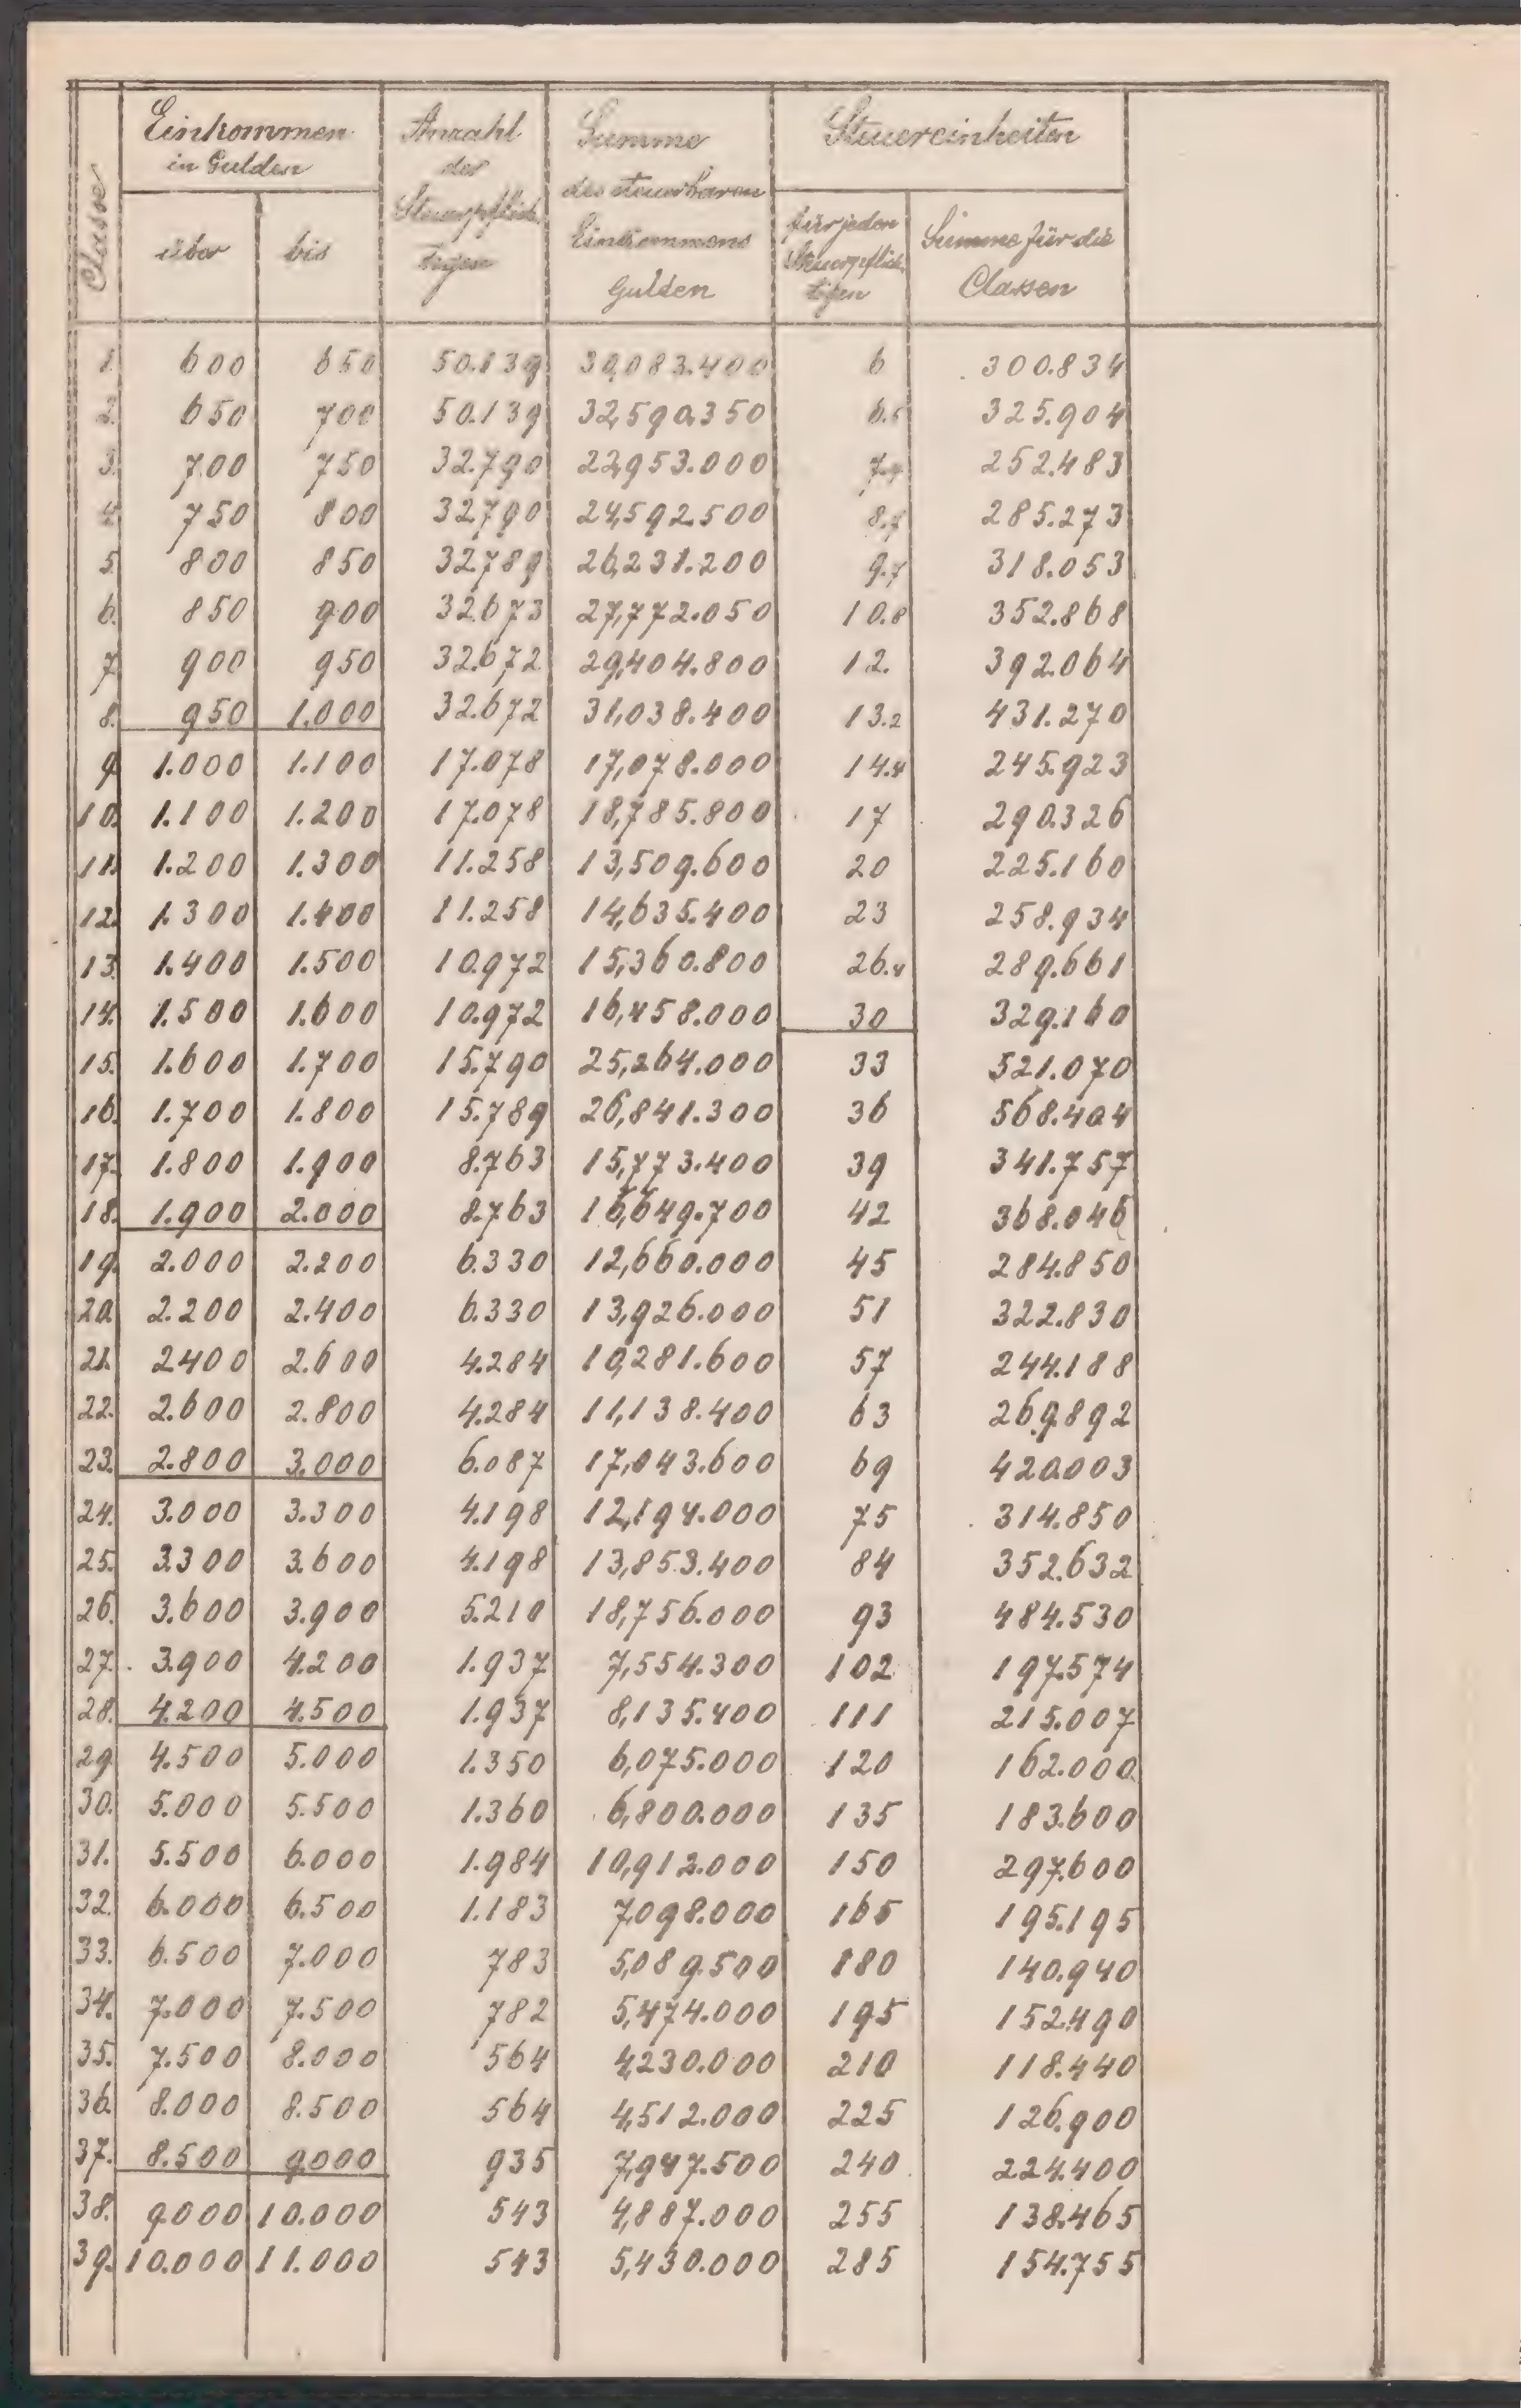 Classe
Einkommen
in Gulden
über
bis
Anzahl
der
Steuerpflich-
tigen
Summe
des steuerbaren
Einkommens
Gulden
Steuereinheiten
für jeden
Steuerpflich-
tigen
Summe für die
Classen
1. 600 650 50.139 30,083.400 6 300.834
2. 650 700 50.139 32,590.350 6.5 325.904
3. 700 750 32.790 22,953.000 252.483
4. 750 800 32.790 24,592.500 8.7 285.273
5. 800 850 32.789 26,231.200 9.7 318.053
6. 850 900 32.673 27,772.050 10.8 352.868
7. 900 950 32.672 29,404.800 12. 392.064
8. 950 1.000 32.672 31,038.400 13.2 431.270
9. 1.000 1.100 17.078 17,078.000 14.4 245.923
10. 1.100 1.200 17.078 18,785.800 17 290.326
11. 1.200 1.300 11.258 13,509.600 20 225.160
12. 1.300 1.400 11.258 14,635.400 23 258.934
13. 1.400 1.500 10.972 15,360.800 26.4 289.661
14. 1.500 1.600 10.972 16,458.000 30 329.160
15. 1.600 1.700 15.790 25,264.000 33 521.070
16. 1.700 1.800 15.789 26,841.300 36 568.404
17. 1.800 1.900 8.763 15,773.400 39 341.757
18. 1.900 2.000 8.763 16,649.700 42 368.046
19. 2.000 2.200 6.330 12,660.000 45 284.850
20. 2.200 2.400 6.330 13,926.000 51 322.830
21. 2400 2.600 4.284 10,281.600 57 244.188
22. 2.600 2.800 4.284 11,138.400 63 269.892
23. 2.800 3.000 6.087 17,043.600 69 420.003
24. 3.000 3.300 4.198 12,194.000 75 314.850
25. 3.300 3.600 4.198 13,853.400 84 352.632
26. 3.600 3.900 5.210 18,756.000 93 484.530
27. 3.900 4.200 1.937 7,554.300 102 197.574
28. 4.200 4.500 1.937 8,135.400 111 215.007
29. 4.500 5.000 1.350 6,075.000 120 162.000
30. 5.000 5.500 1.360 6,800.000 135 183.600
31. 5.500 6.000 1.984 10,912.000 150 297.600
32. 6.000 6.500 1.183 7,098.000 165 195.195
33. 6.500 7.000 783 5,089.500 180 140.940
34. 7.000 7.500 782 5,474.000 195 152.490
35. 7.500 8.000 564 4,230.000 210 118.440
36. 8.000 8.500 564 4,512.000 225 126.900
37. 8.500 9.000 935 7,947.500 240 224.400
38. 9.000 10.000 543 4,887.000 255 138.465
39. 10.000 11.000 543 5,430.000 285 154.755